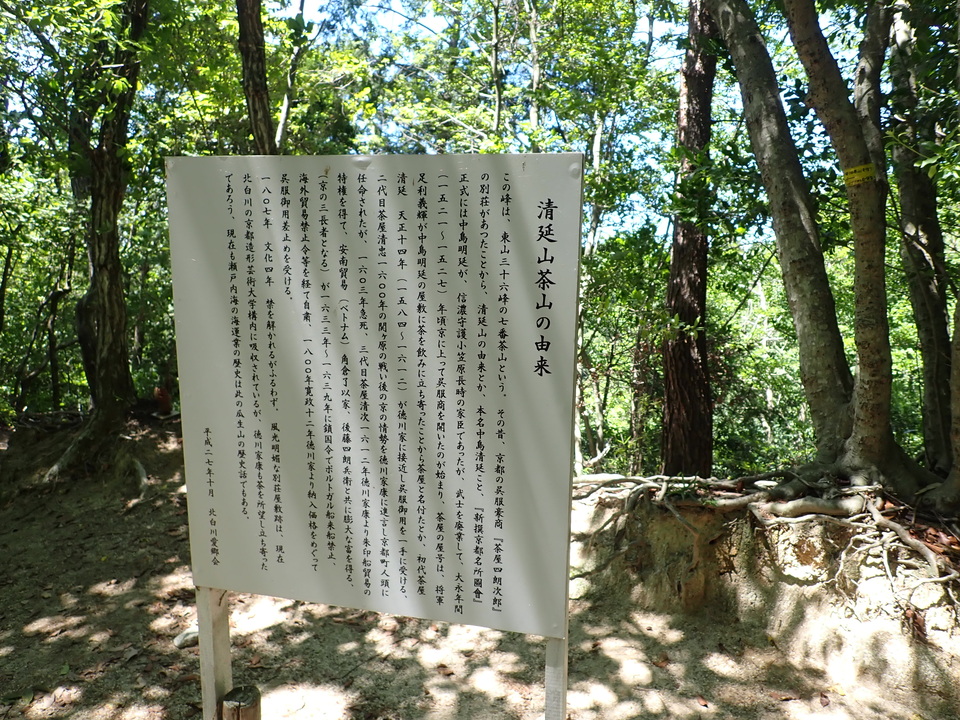 清延山茶山の由来
この峰は、東山三十六峰の七番茶山という。その昔、京都の呉服豪商『茶屋四朗次郎』
の別荘があつたことから、清延山の由来とか、本名中島清延こと、『新撰京都名所圖會』
正式には中島明延が、信濃守護小笠原長時の家臣であったが、武士を廃業して、大永年間
(一五二一～一五二七)年頃京に上って呉服商を開いたのが始まり、茶屋の屋号は、将軍
足利義輝が中島明延の屋敷に茶を飲みに立ち寄ったことから茶屋と名付たとか、初代茶屋
清延 天正十四年(一五八四～一六一二)が徳川家に接近し呉服御用を一手に受ける。
二代目茶屋清忠一六〇〇年の関ヶ原の戦い後の京の情勢を徳川家康に進言し京都町人頭に
任命されたが、一六〇三年急死、三代目茶屋清次一六一二年徳川家康より朱印船貿易の
特権を得て、安南貿易(ベトナム)角倉了以家、後藤四朗兵衛と共に膨大な富を得る、
(京の三長者となる)が一六三三年～一六三九年に鎖国令でポルトガル船来船禁止、
海外貿易禁止令等を経て自粛、一八〇〇年寛政十二年徳川家より納入価格をめぐって
呉服御用差止めを受ける。
一八〇七年 文化四年 禁を解かれるがふるわず。風光明媚な別荘屋敷跡は、現在
北白川の京都造形芸術大学構内に吸収されているが、徳川家康も茶を所望し立ち寄った
であろう、現在も瀬戸内海の海運業の歴史は此の瓜生山の歴史話でもある。
平成二七年十月 北白川愛郷会